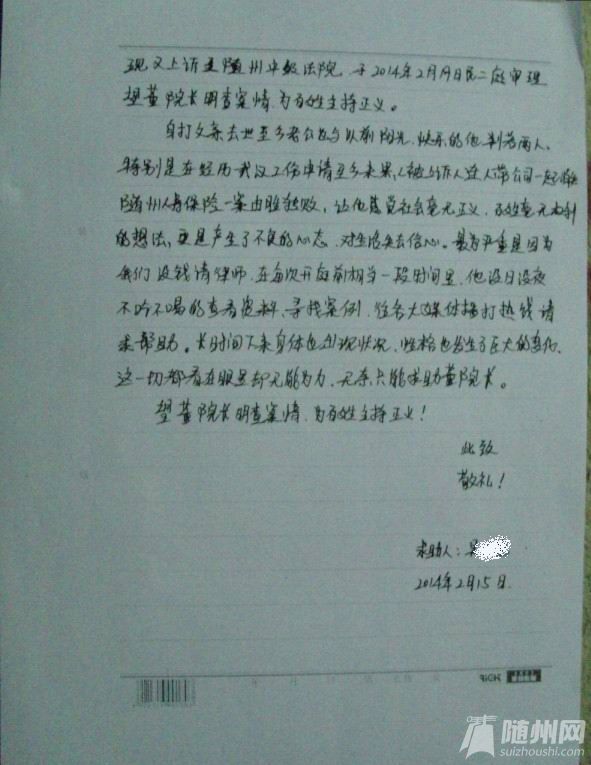 现又上诉至随州中级法院，于2014年2月19日民二庭审理
望董院长明查案情，为百姓主持正义。
自打父亲去世至今老公也与以前阳光、快乐的他判若两人，
特别是在经历我父工伤申请至今未果，被上诉人连人带公司一起
随州人寿保险一案由胜转败，让他感觉社会毫无正义，百姓毫无权利
的想法，更是产生了不良的心态，对生活失去信心。最为严重是因为
我们没钱请律师，在每次开庭前相当一段时间里，他没日没夜
不吃不喝的查看资料、寻找案例，给各大媒体拨打热线请
求帮助。长时间下来身体也出现状况，性格也发生了巨大的变化。
这一切都看在眼里却无能为力，无奈只能求助董院长。
望董院长明查案情，为百姓主持正义！
此致
敬礼！
求助人：吴
2014年2月15日
随州网
suizhoushi.com